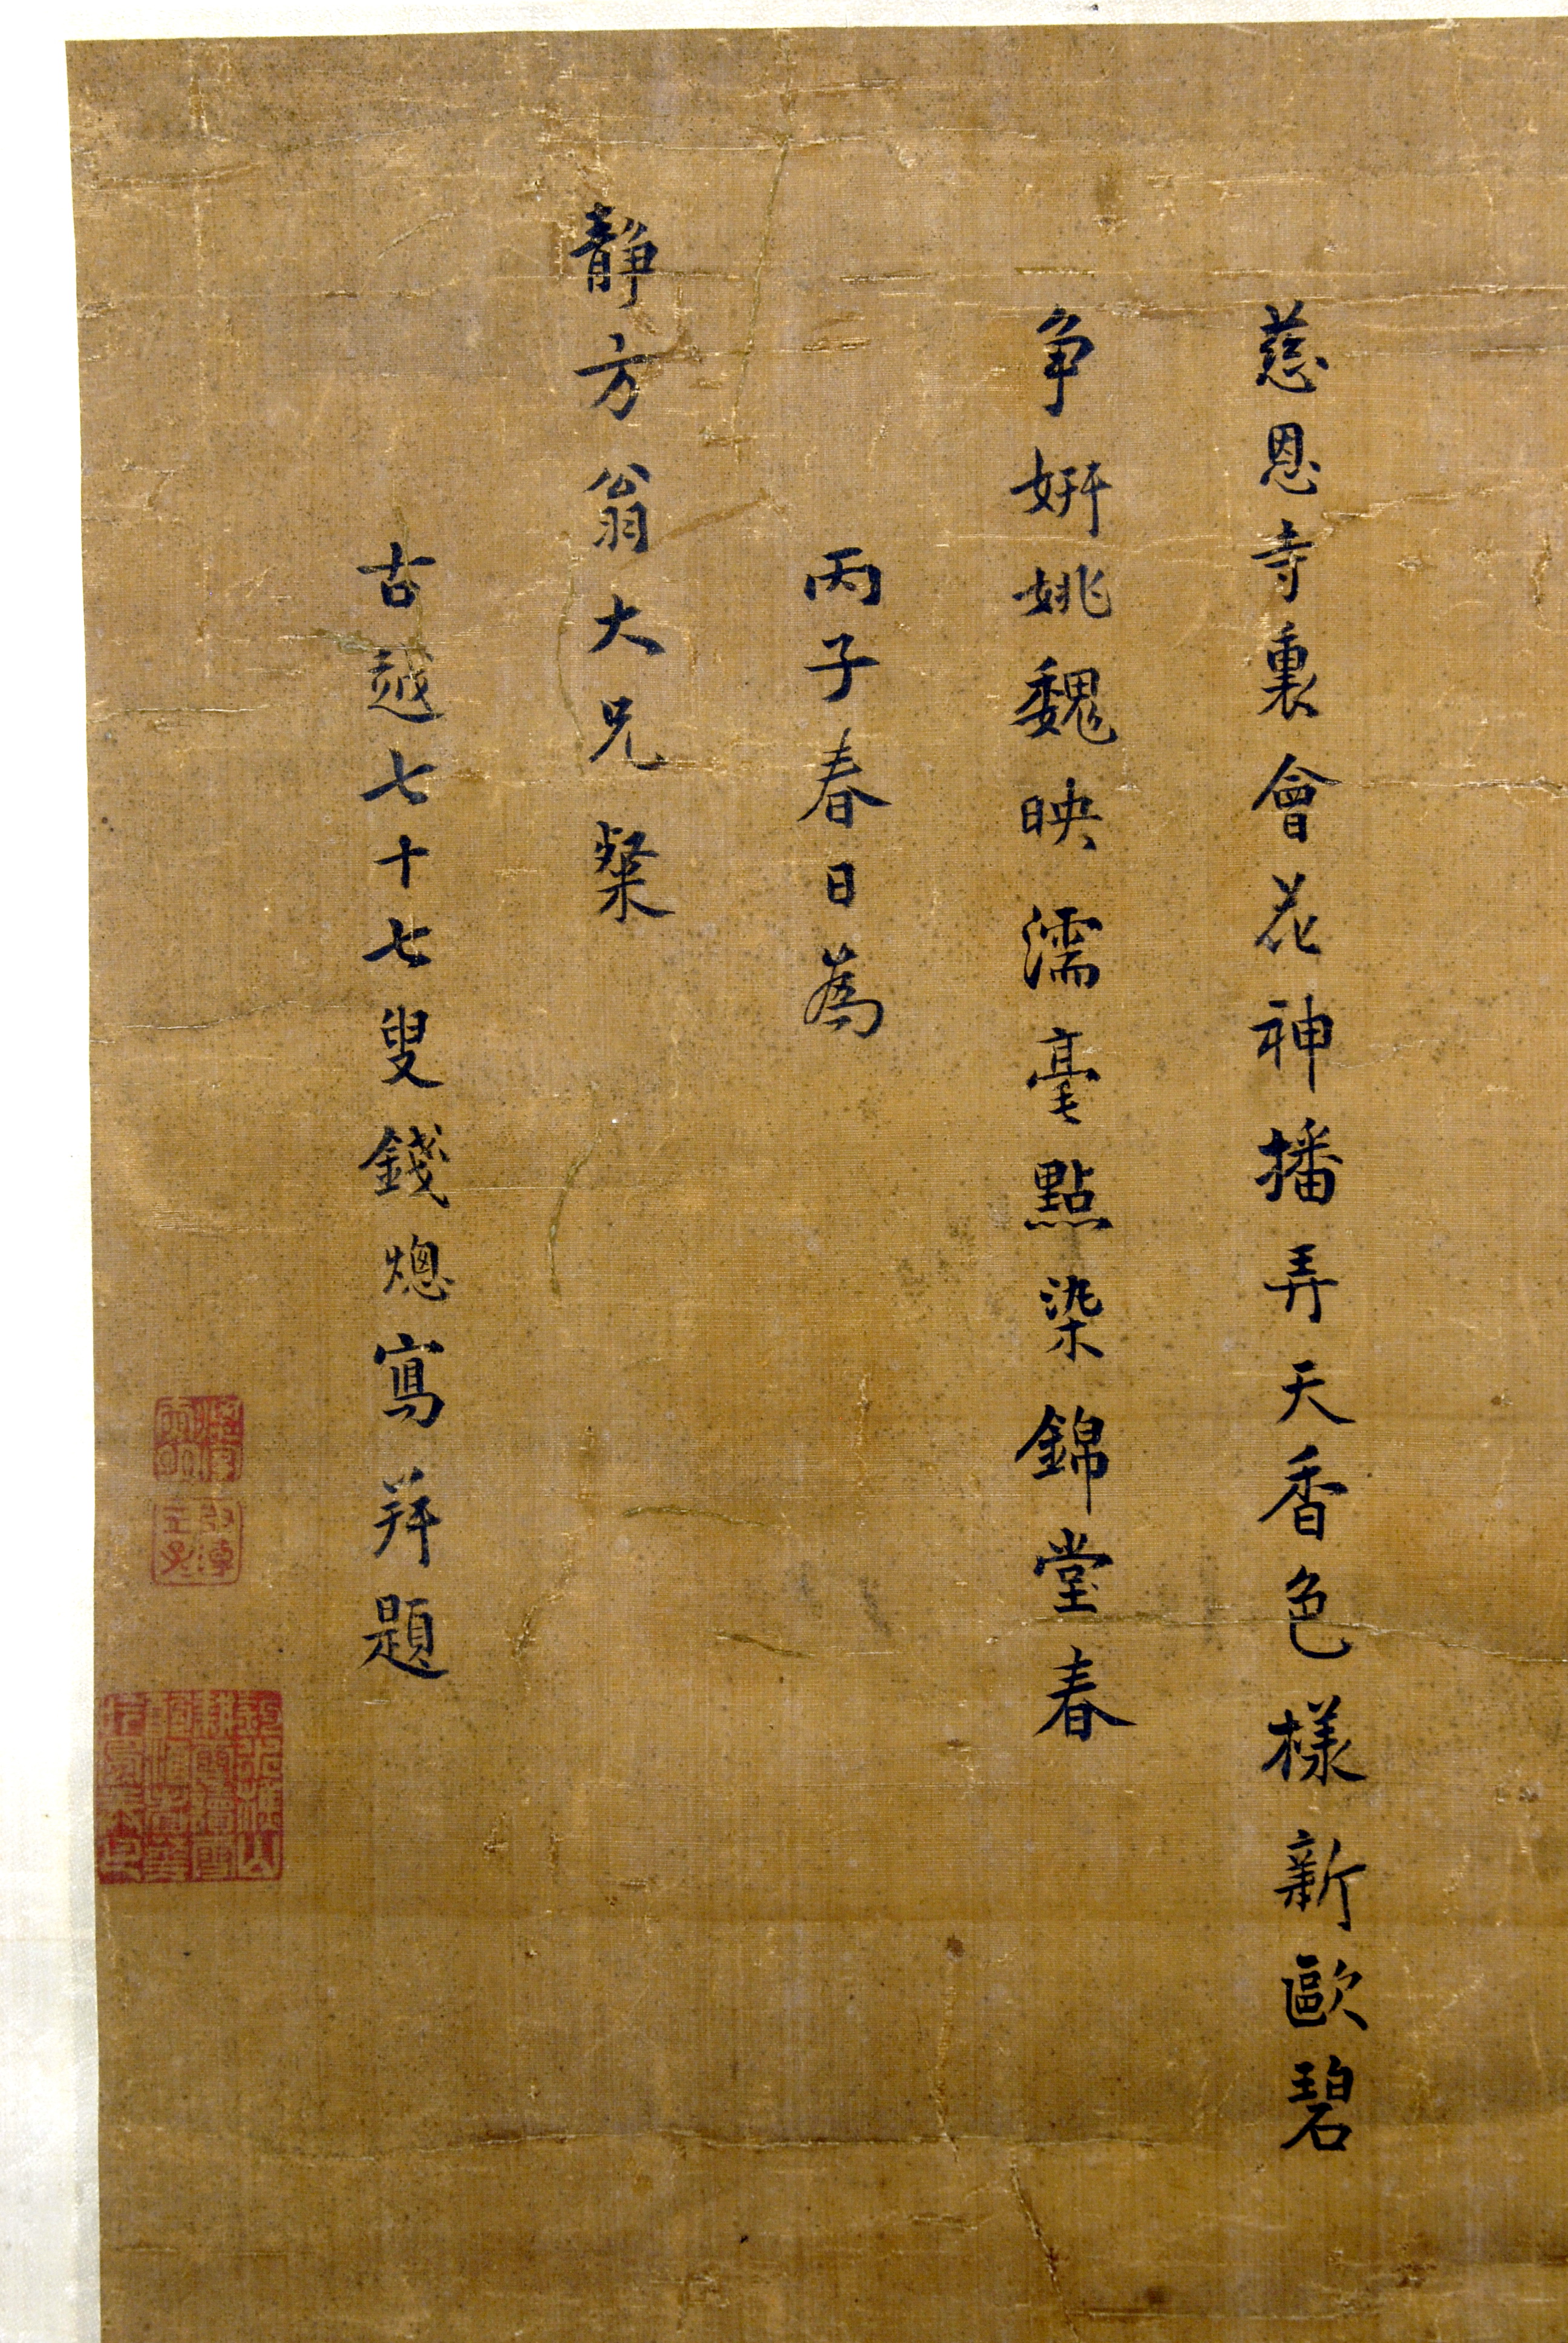 慈恩寺裏會花神播弄天香色樣新歐碧
争妍姚魏映濡毫點染錦堂春
丙子春日為
静方翁大兄粲
古越七十七叟錢熜寫并題